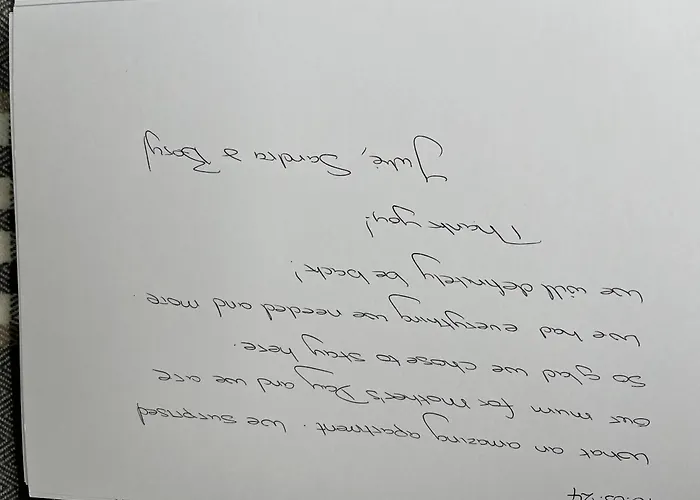 .03.24
What an amazing apartment. We surprised
our mum for Mother's Day and we are
so glad we chose to stay here.
We had everything we needed and more
we will definitely be back!
Thank you!
Julie, Sandra &